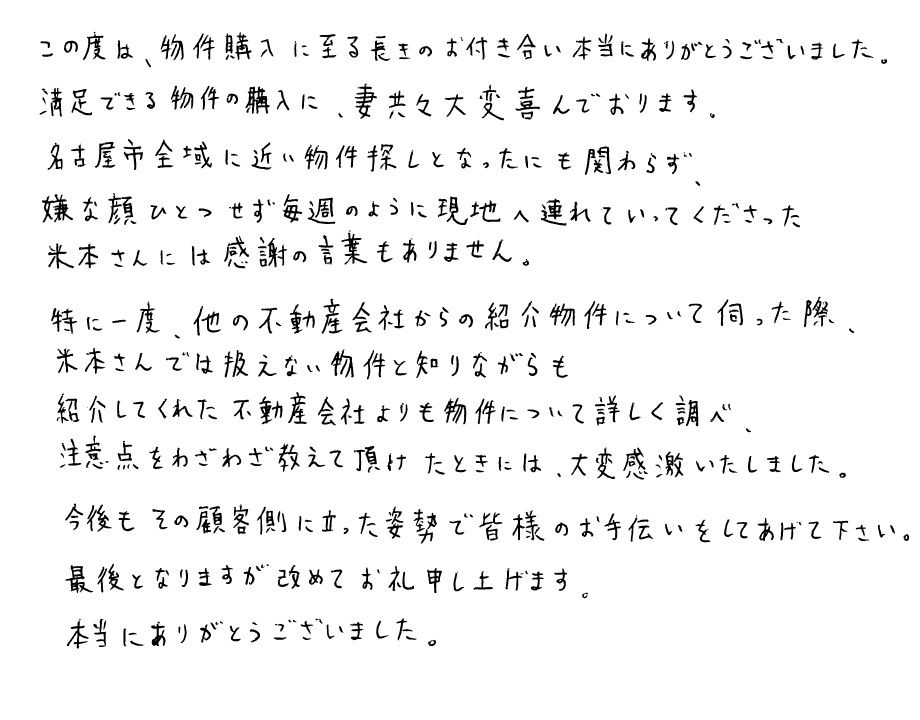 この度は、物件購入に至る長きのお付き合い本当にありがとうございました。
満足できる物件の購入に、妻共々大変喜んでおります。
名古屋市全域に近い物件探しとなったにも関わらず、
嫌な顔ひとつせず毎週のように現地へ連れていってくださった
米本さんには感謝の言葉もありません。
特に一度、他の不動産会社からの紹介物件について伺った際、
米本さんでは扱えない物件と知りながらも
紹介してくれた不動産会社よりも物件について詳しく調べ、
注意点をわざわざ教えて頂けたときには、大変感激いたしました。
今後もその顧客側に立った姿勢で皆様のお手伝いをしてあげて下さい。
最後となりますが改めてお礼申し上げます。
本当にありがとうございました。